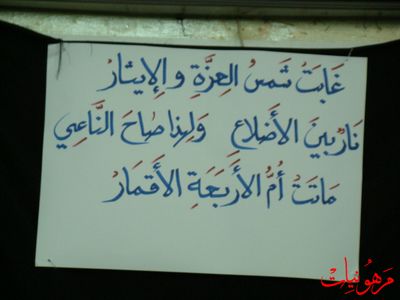 غَابَتْ شَمْسُ العِزَّةِ والإِيثارْ
نَارٌ بَينَ الأَضْلاعِ وَلِهذا صَاحَ النَّاعِي
مَاتَتْ أُمُّ الأَربَعَةِ الأَقمَارْ
مَرهُونيات